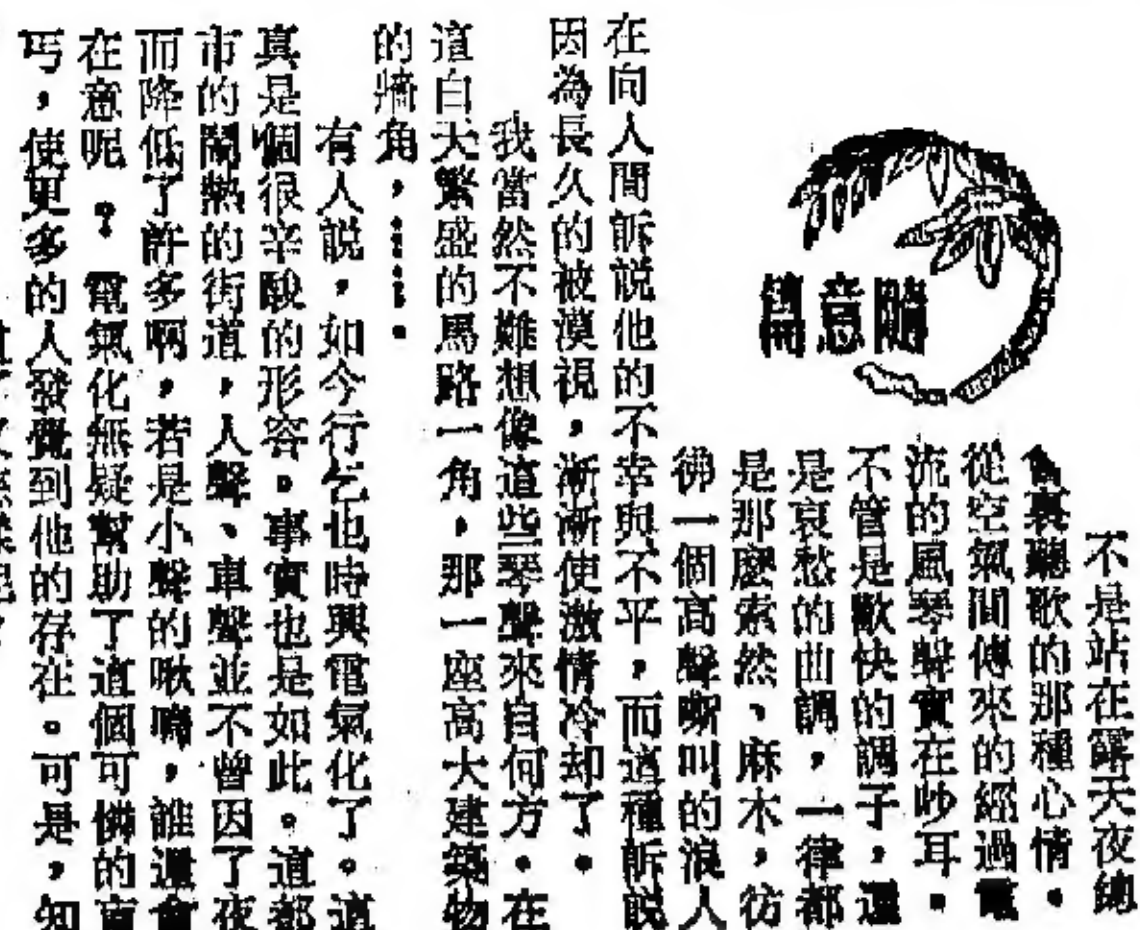 隨意
不是站在露天夜總
會裏聽歌的那種心情。
從空氣間傳來的經過電
流的風琴聲實在吵耳。
不管是歡快的調子,還
是哀愁的曲調,一律都
是那麼索然、麻木,彷
彿一個高聲嘶叫的浪人
在向人間訴說他的不幸與不平,而這種訴說
因為長久的被漠視,漸漸使激情冷却了。
我當然不難想像這些琴聲來自何方。在
這白天繁盛的馬路一角,那一座高大建築物
的牆角,……。
有人說,如今行乞也時興電氣化了。這
真是個很辛酸的形容。事實也是如此。這都
市的鬧熱的街道,人聲、車聲並不曾因了夜
而降低了許多啊,若是小聲的啾鳴,誰還會
在意呢?電氣化無疑幫助了這個可憐的盲
丐,使更多的人發覺到他的存在。可是,知